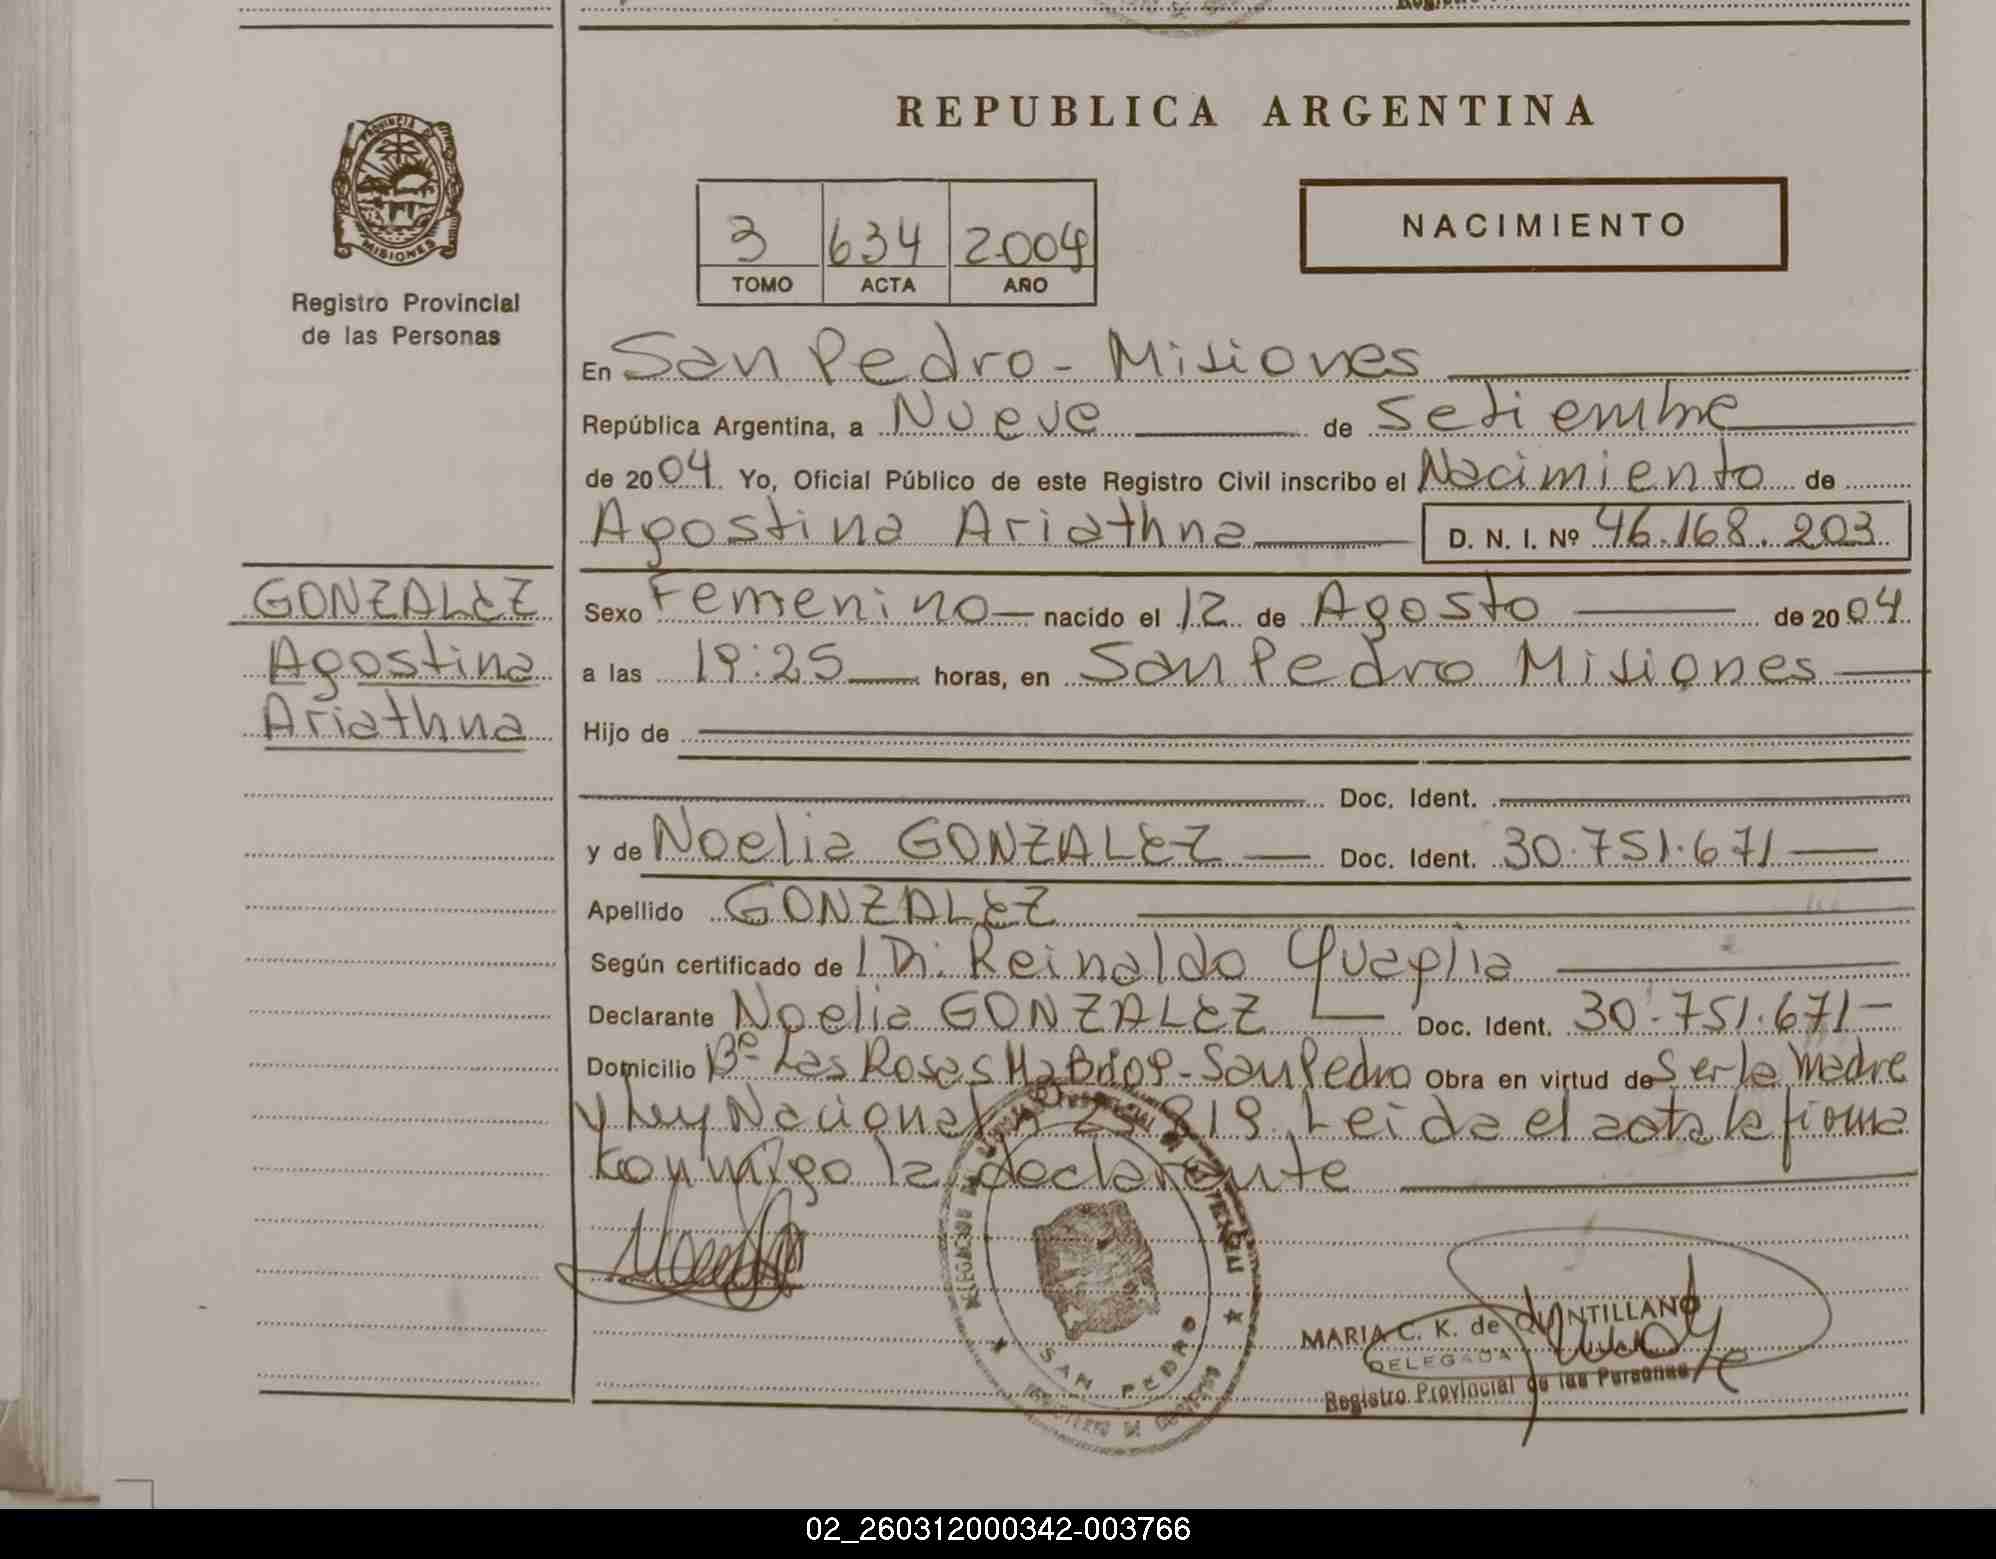 REPUBLICA ARGENTINA
PROVINCIA DE
MISIONES
Registro Provincial
de las Personas
3 634 2004
TOMO ACTA AÑO
NACIMIENTO
En San Pedro - Misiones
República Argentina, a Nueve de Setiembre
de 2004 Yo, Oficial Público de este Registro Civil inscribo el Nacimiento de
Agostina Ariathna D. N. I. Nº 46.168.203
GONZALEZ
Agostina
Ariathna
Sexo Femenino nacido el 12 de Agosto de 2004
a las 19:25 horas, en San Pedro Misiones
Hijo de
Doc. Ident.
y de Noelia GONZALEZ Doc. Ident. 30.751.671
Apellido GONZALEZ
Según certificado de Reinaldo Quaglia
Declarante Noelia GONZALEZ Doc. Ident. 30.751.671
Domicilio Bº Las Rosas San Pedro Obra en virtud de Ser la Madre
y Ley Nacional Leida el acta la firma
conmigo la declarante
SAN PEDRO
MARIA C. K. de QUINTILLANO
DELEGADA
Registro Provincial de las Personas
02_260312000342-003766